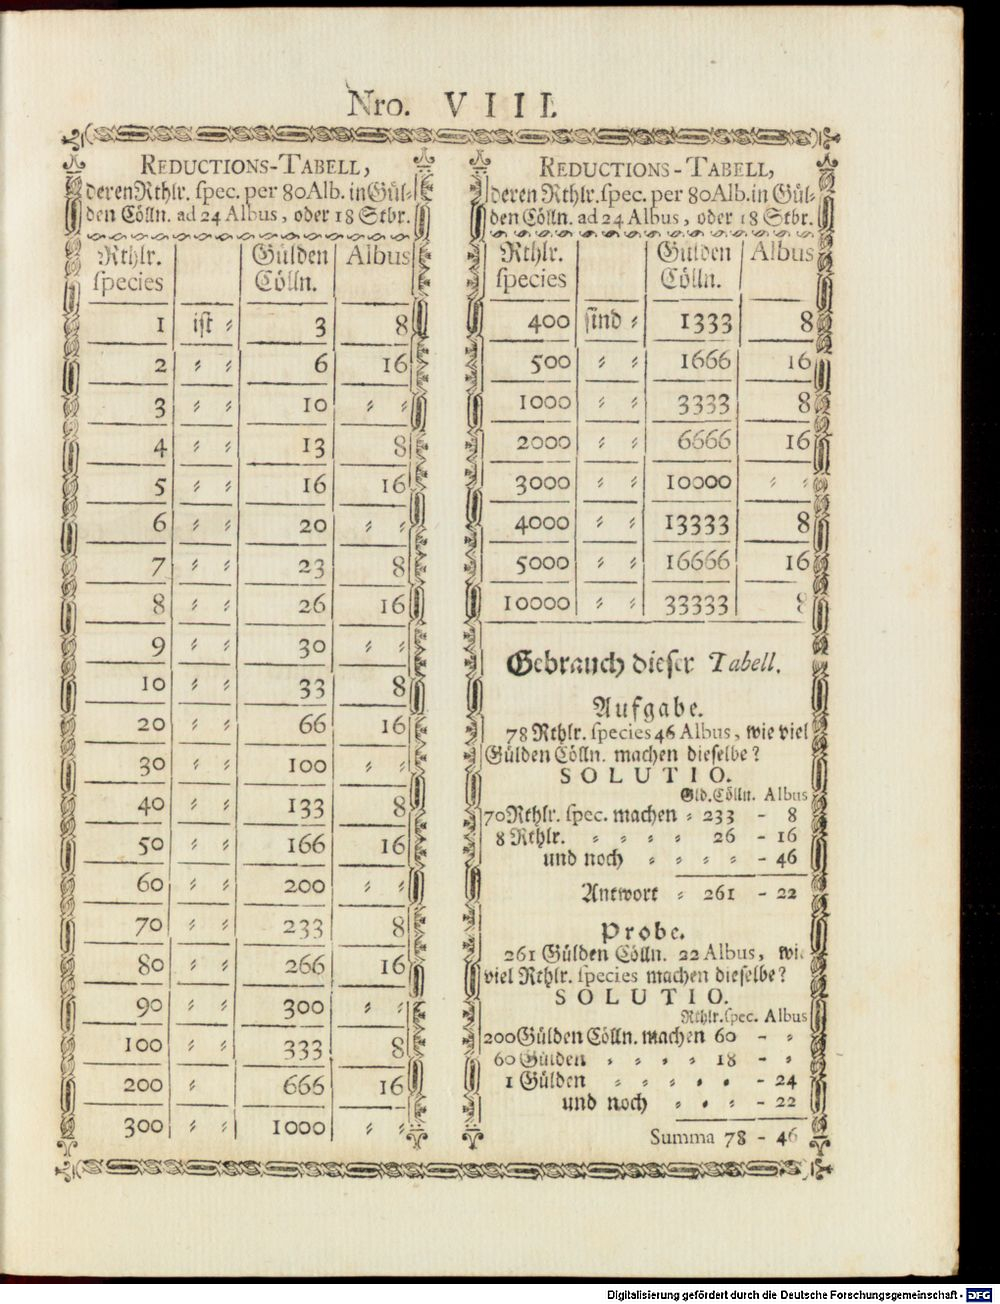 Nro. VIII.
REDUCTIONS-TABELL,
deren Rthlr. spec. per 80 Alb. in Gül-
den Cölln. ad 24 Albus, oder 18 Stbr.
Rthlr. Gülden Albus
species Cölln.
1 ist 〃 3 8
2 〃 〃 6 16
3 〃 〃 10 〃 〃
4 〃 〃 13 8
5 〃 〃 16 16
6 〃 〃 20 〃 〃
7 〃 〃 23 8
8 〃 〃 26 16
9 〃 〃 30 〃 〃
10 〃 〃 33 8
20 〃 〃 66 16
30 〃 〃 100 〃 〃
40 〃 〃 133 8
50 〃 〃 166 16
60 〃 〃 200 〃 〃
70 〃 〃 233 8
80 〃 〃 266 16
90 〃 〃 300 〃 〃
100 〃 〃 333 8
200 〃 666 16
300 〃 〃 1000 〃 〃
REDUCTIONS-TABELL,
deren Rthlr. spec. per 80 Alb. in Gül-
den Cölln. ad 24 Albus, oder 18 Stbr.
Rthlr. Gülden Albus
species Cölln.
400 sind 〃 1333 8
500 〃 〃 1666 16
1000 〃 〃 3333 8
2000 〃 〃 6666 16
3000 〃 〃 10000 〃 〃
4000 〃 〃 13333 8
5000 〃 〃 16666 16
10000 〃 〃 33333 8
Gebrauch dieser Tabell.
Aufgabe.
78 Rthlr. species 46 Albus, wie viel
Gülden Cölln. machen dieselbe?
SOLUTIO.
Gld. Cölln. Albus
70 Rthlr. spec. machen 〃 233 - 8
8 Rthlr. 〃 〃 〃 〃 26 - 16
und noch 〃 〃 〃 〃 - 46
Antwort 〃 261 - 22
Probe.
261 Gülden Cölln. 22 Albus, wie
viel Rthlr. species machen dieselbe?
SOLUTIO.
Rthlr. spec. Albus
200 Gülden Cölln. machen 60 - 〃
60 Gülden 〃 〃 〃 〃 18 - 〃
1 Gülden 〃 〃 〃 〃 〃 - 24
und noch 〃 〃 〃 - 22
Summa 78 - 46
Digitalisierung gefördert durch die Deutsche Forschungsgemeinschaft - DFG